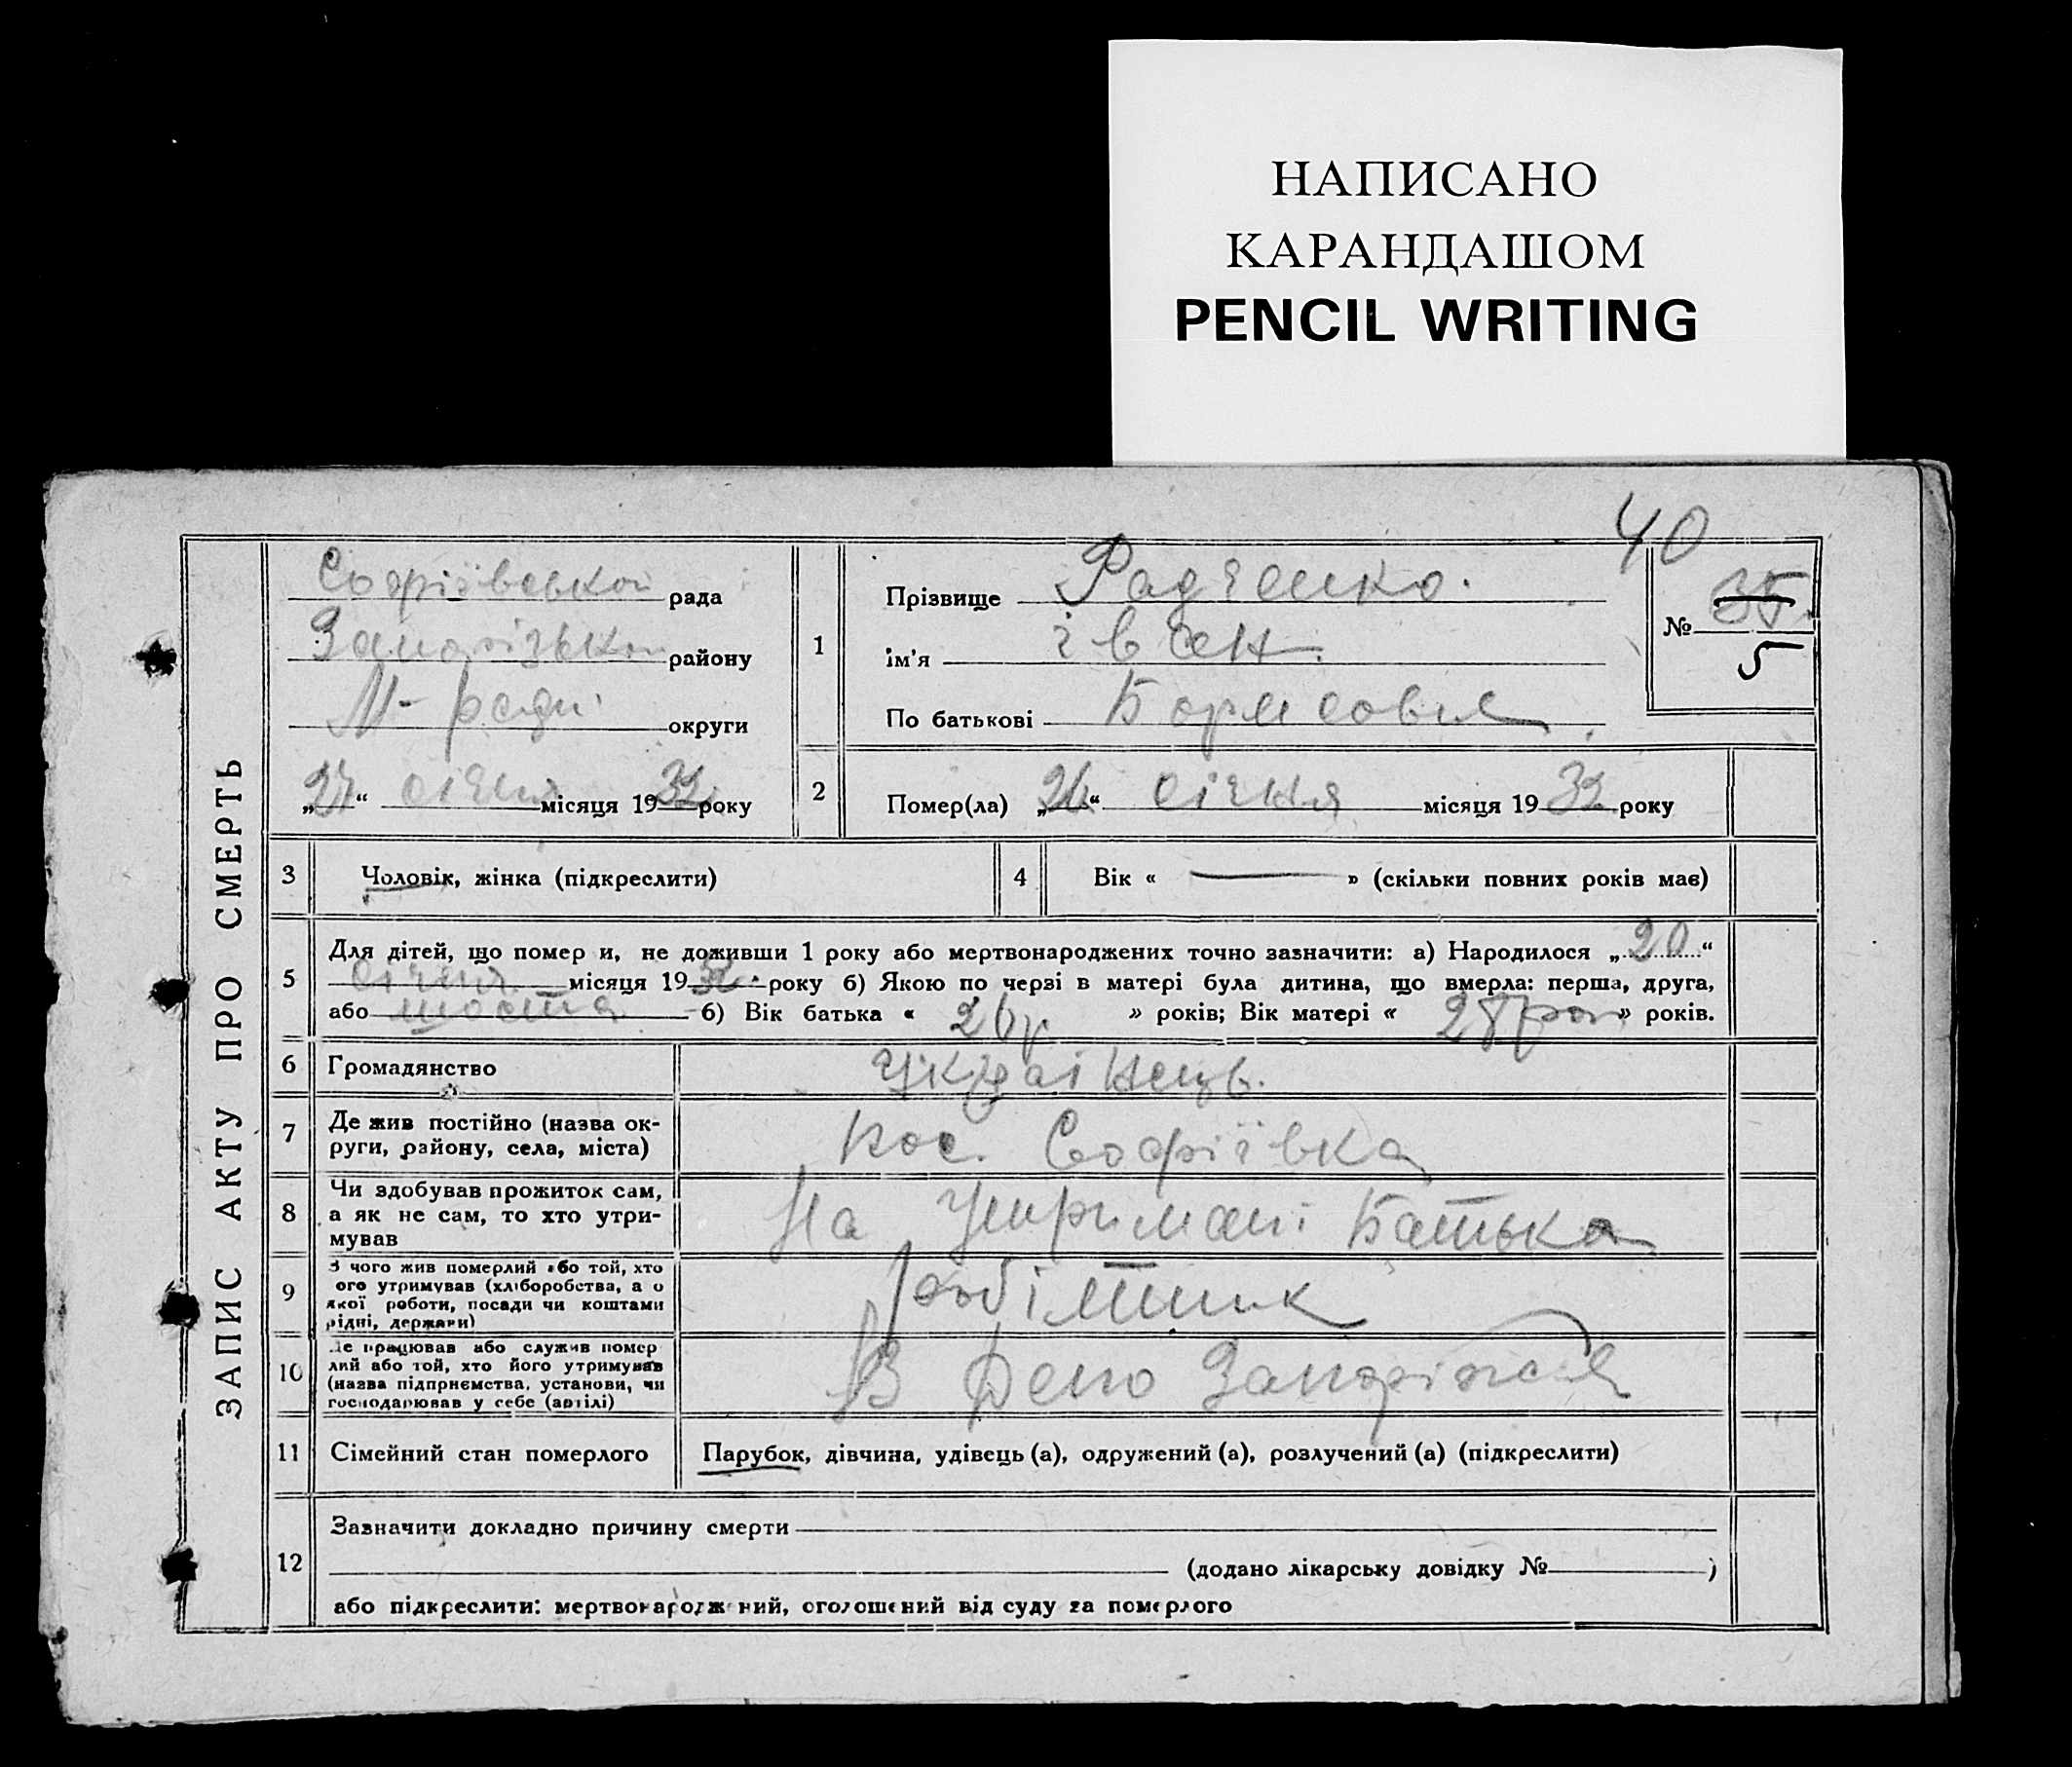 НАПИСАНО
КАРАНДАШОМ
PENCIL WRITING
40
ЗАПИС АКТУ ПРО СМЕРТЬ
Софіївської рада
Запорізької району
М-ради округи
„27“ січня місяця 1932 року
1
Прізвище Радченко.
ім'я іван.
По батькові Борисович
№ 35
5
2
Помер(ла) „26“ січня місяця 1932 року
3
Чоловік, жінка (підкреслити)
4
Вік « — » (скільки повних років має)
5
Для дітей, що помер и, не доживши 1 року або мертвонароджених точно зазначити: а) Народилося „20“
січня місяця 1932 року б) Якою по черзі в матері була дитина, що вмерла: перша, друга,
або шоста б) Вік батька « 26р » років; Вік матері « 28 » років.
6
Громадянство
Українець.
7
Де жив постійно (назва ок-
руги, району, села, міста)
пос. Софіївка
8
Чи здобував прожиток сам,
а як не сам, то хто утри-
мував
На утримані Батька
9
З чого жив померлий або той, хто
ого утримував (хліборобства, а о
якої роботи, посади чи коштами
рідні, держави)
робітник
10
Де працював або служив помер
лий або той, хто його утримував
(назва підприємства, установи, чи
господарював у себе (артілі)
В Депо Запоріжся
11
Сімейний стан померлого
Парубок, дівчина, удівець (а), одружений (а), розлучений (а) (підкреслити)
12
Зазначити докладно причину смерти
(додано лікарську довідку № )
або підкреслити: мертвонароджений, оголошений від суду за померлого